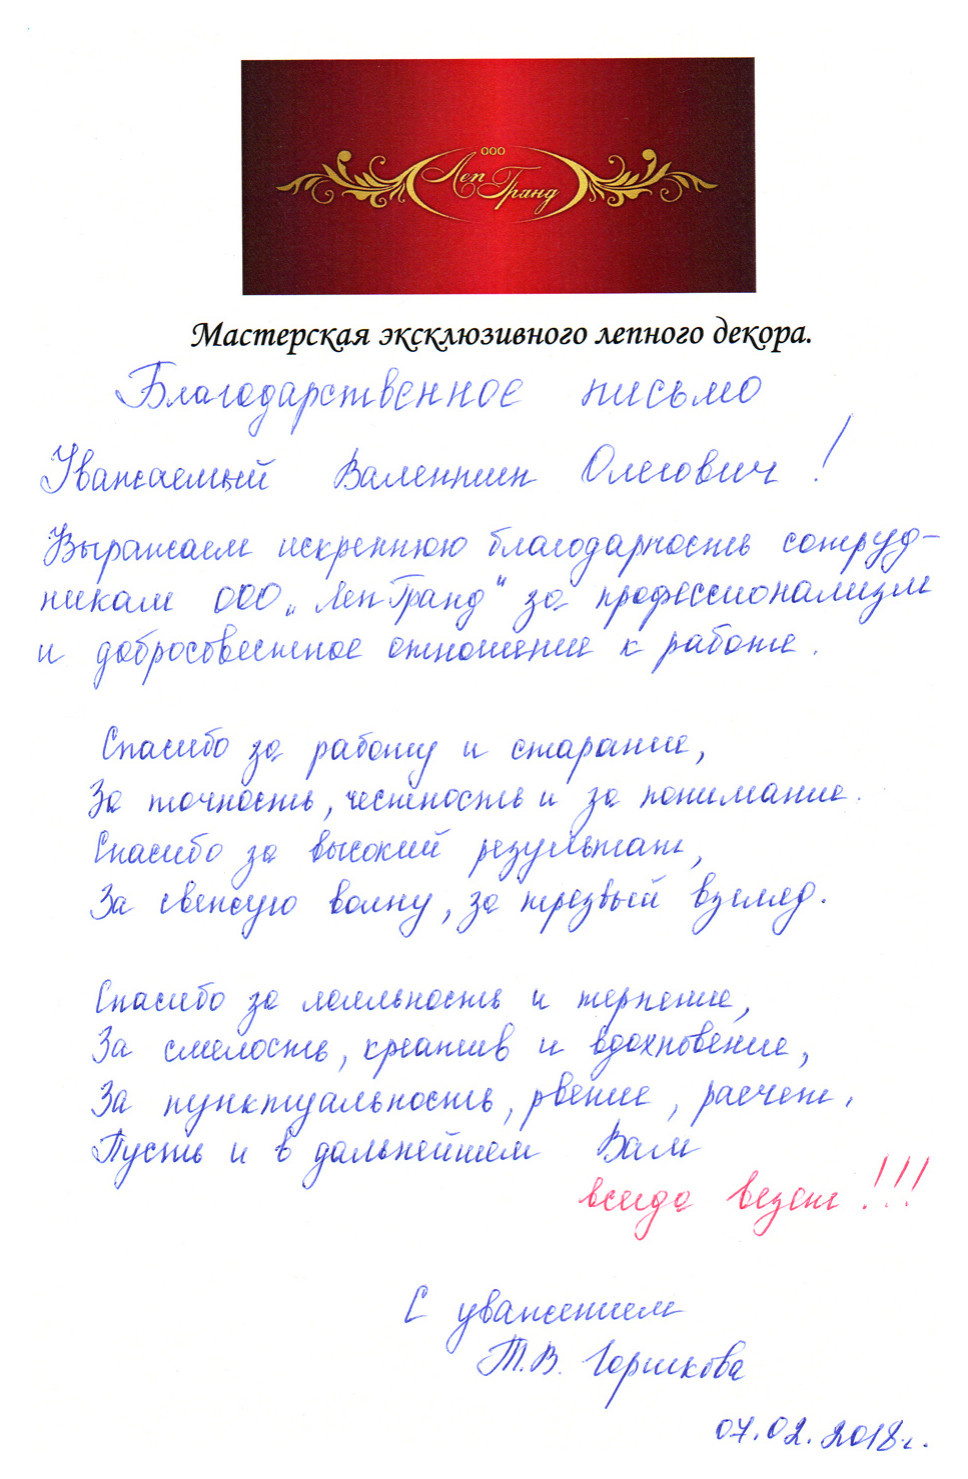 ООО
Леп Гранд
Мастерская эксклюзивного лепного декора.
Благодарственное письмо
Уважаемый Валентин Олегович!
Выражаем искреннюю благодарность сотруд-
никам ООО „ЛепГранд" за профессионализм
и добросовестное отношение к работе.
Спасибо за работу и старание,
За точность, честность и за понимание.
Спасибо за высокий результат,
За свежую волну, за трезвый взгляд.
Спасибо за лояльность и терпение,
За смелость, креатив и вдохновение,
За пунктуальность, рвение, расчет,
Пусть и в дальнейшем Вам
всегда везет!!!
С уважением
Т.В. Горшкова
07.02.2018г.